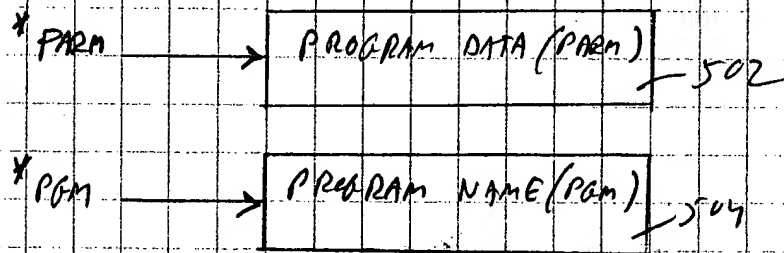 * PARM PROGRAM DATA (PARM) 502
* PGM PROGRAM NAME (PGM) 504